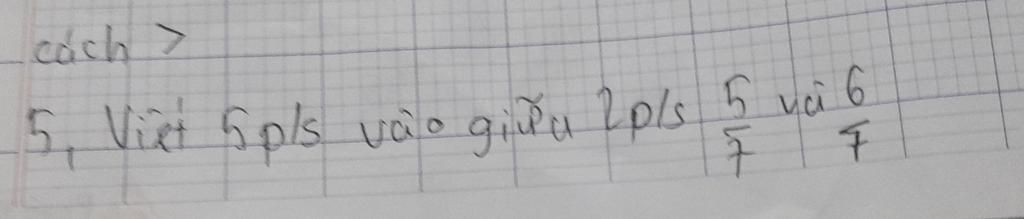 cách >
5, Viết 5 p/s vào giữa 2 p/s 5/7 và 6/7